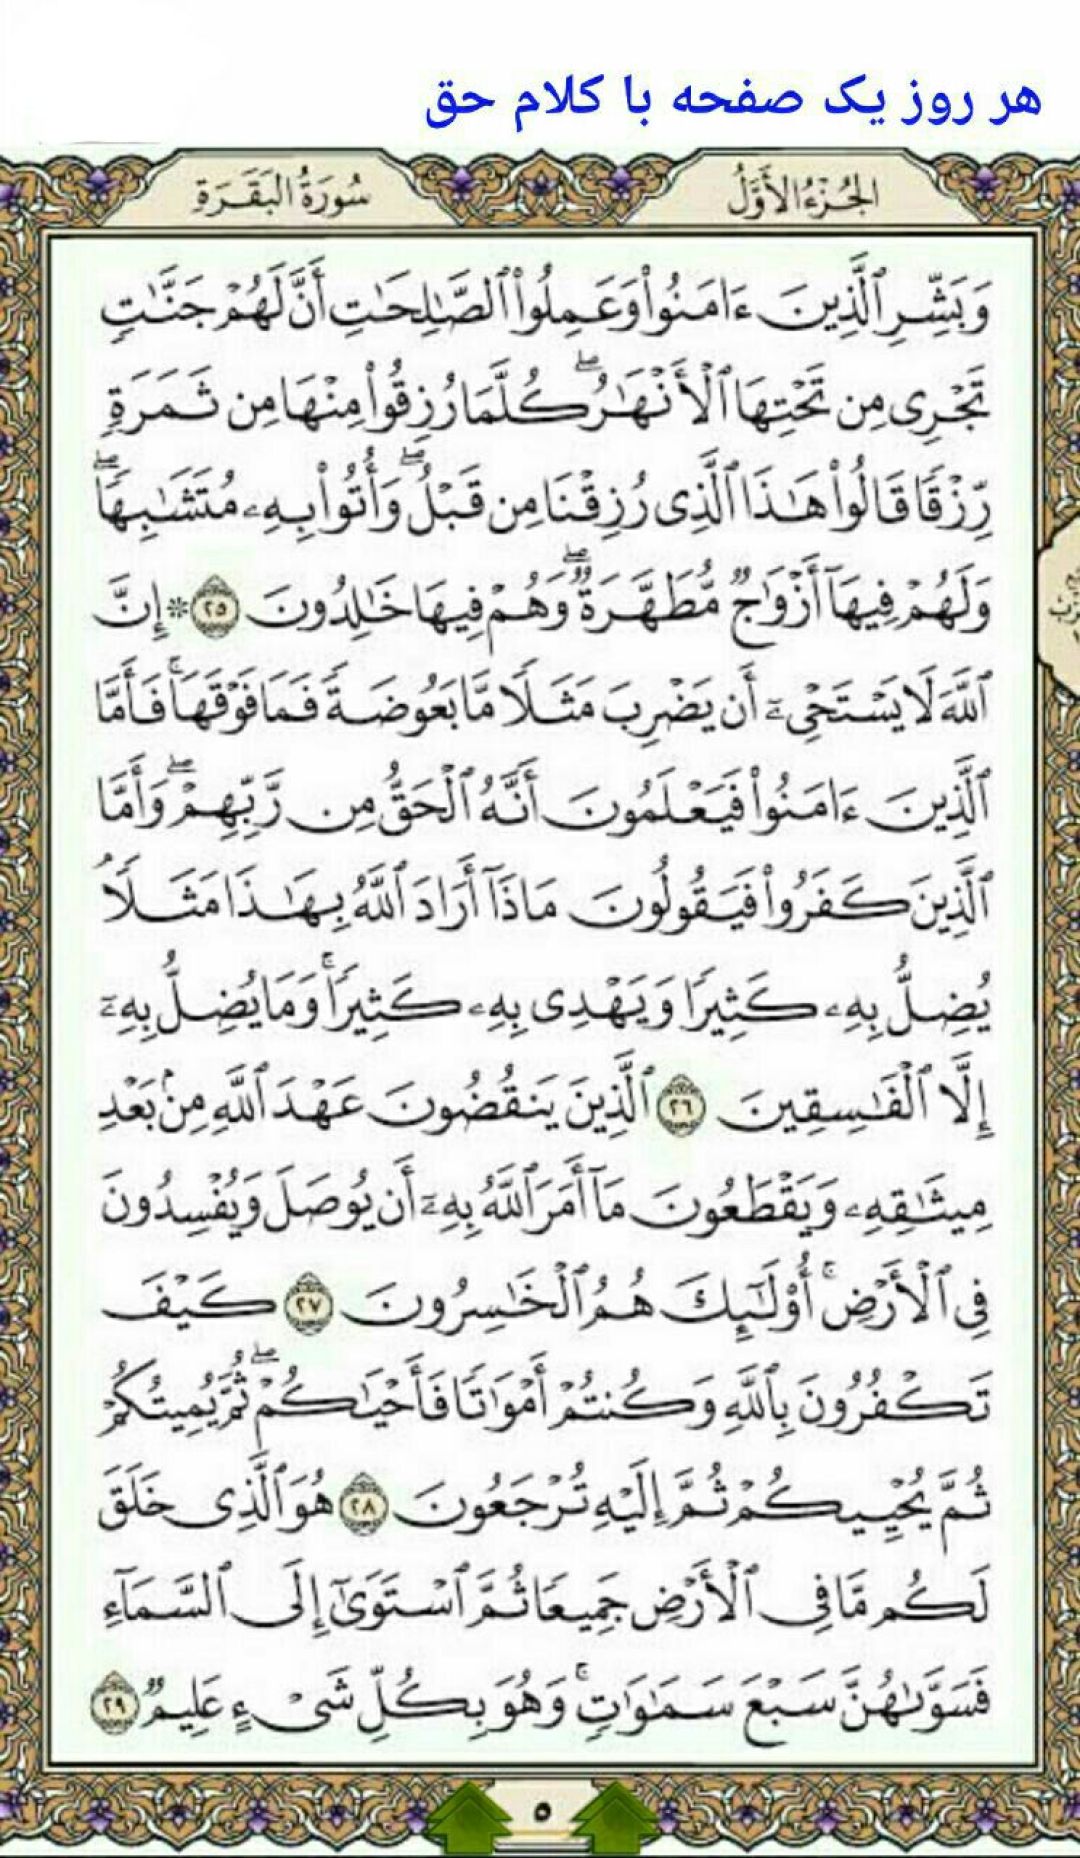 هر روز یک صفحه با کلام حق
الجُزْءُ الأَوَّلُ
سُورَةُ البَقَرَةِ
وَبَشِّرِ ٱلَّذِينَ ءَامَنُوا۟ وَعَمِلُوا۟ ٱلصَّـٰلِحَـٰتِ أَنَّ لَهُمْ جَنَّـٰتٍ
تَجْرِى مِن تَحْتِهَا ٱلْأَنْهَـٰرُ ۖ كُلَّمَا رُزِقُوا۟ مِنْهَا مِن ثَمَرَةٍ
رِّزْقًا قَالُوا۟ هَـٰذَا ٱلَّذِى رُزِقْنَا مِن قَبْلُ ۖ وَأُتُوا۟ بِهِۦ مُتَشَـٰبِهًا ۖ
وَلَهُمْ فِيهَآ أَزْوَٰجٌ مُّطَهَّرَةٌ ۖ وَهُمْ فِيهَا خَـٰلِدُونَ ٢٥ * إِنَّ
ٱللَّهَ لَا يَسْتَحْىِۦٓ أَن يَضْرِبَ مَثَلًا مَّا بَعُوضَةً فَمَا فَوْقَهَا ۚ فَأَمَّا
ٱلَّذِينَ ءَامَنُوا۟ فَيَعْلَمُونَ أَنَّهُ ٱلْحَقُّ مِن رَّبِّهِمْ ۖ وَأَمَّا
ٱلَّذِينَ كَفَرُوا۟ فَيَقُولُونَ مَاذَآ أَرَادَ ٱللَّهُ بِهَـٰذَا مَثَلًا ۘ
يُضِلُّ بِهِۦ كَثِيرًا وَيَهْدِى بِهِۦ كَثِيرًا ۚ وَمَا يُضِلُّ بِهِۦٓ
إِلَّا ٱلْفَـٰسِقِينَ ٢٦ ٱلَّذِينَ يَنقُضُونَ عَهْدَ ٱللَّهِ مِنۢ بَعْدِ
مِيثَـٰقِهِۦ وَيَقْطَعُونَ مَآ أَمَرَ ٱللَّهُ بِهِۦٓ أَن يُوصَلَ وَيُفْسِدُونَ
فِى ٱلْأَرْضِ ۚ أُو۟لَـٰٓئِكَ هُمُ ٱلْخَـٰسِرُونَ ٢٧ كَيْفَ
تَكْفُرُونَ بِٱللَّهِ وَكُنتُمْ أَمْوَٰتًا فَأَحْيَـٰكُمْ ۖ ثُمَّ يُمِيتُكُمْ
ثُمَّ يُحْيِيكُمْ ثُمَّ إِلَيْهِ تُرْجَعُونَ ٢٨ هُوَ ٱلَّذِى خَلَقَ
لَكُم مَّا فِى ٱلْأَرْضِ جَمِيعًا ثُمَّ ٱسْتَوَىٰٓ إِلَى ٱلسَّمَآءِ
فَسَوَّىٰهُنَّ سَبْعَ سَمَـٰوَٰتٍ ۚ وَهُوَ بِكُلِّ شَىْءٍ عَلِيمٌ ٢٩
٥